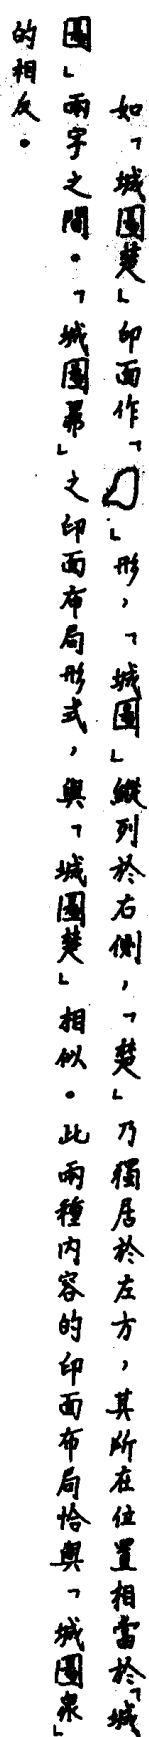 如「城圖楚」印面作「」形，「城圖」縱列於右側，「楚」乃獨居於左方，其所在位置相當於「城
圖」兩字之間。「城圖」之印面布局形式，與「城圖楚」相似。此兩種內容的印面布局恰與「城圖泉」
的相反。